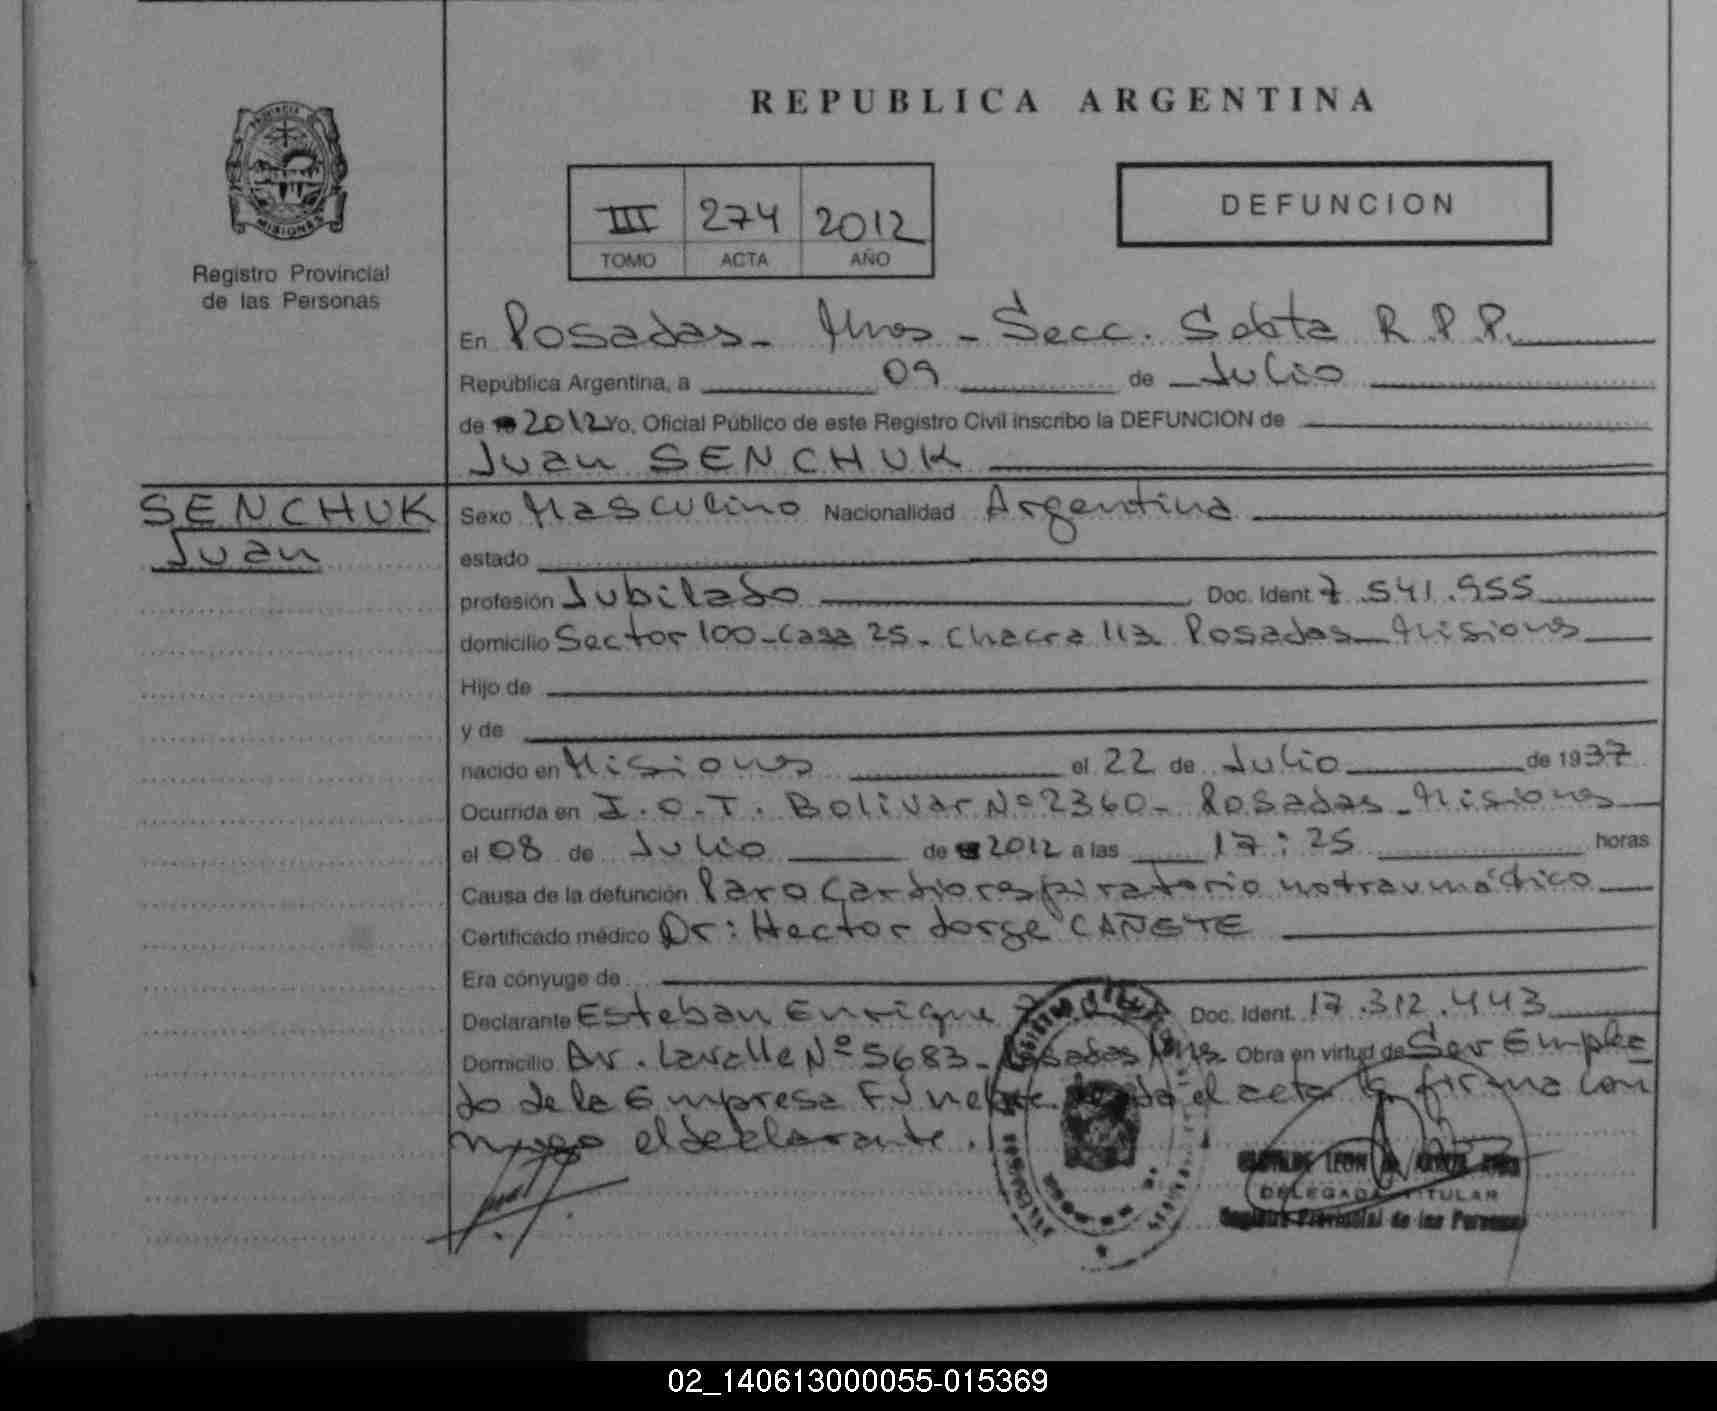 REPUBLICA ARGENTINA
PROVINCIA
MISIONES
Registro Provincial
de las Personas
III 274 2012
TOMO ACTA AÑO
DEFUNCION
En Posadas - Mnes - Secc. Sexta R.P.P.
República Argentina, a 09 de Julio
de 2012 Yo, Oficial Público de este Registro Civil inscribo la DEFUNCION de
Juan SENCHUK
SENCHUK
Juan
Sexo Masculino Nacionalidad Argentina
estado
profesión Jubilado Doc. Ident 7.541.955
domicilio Sector 100 - Casa 25 - Chacra 113 Posadas - Misiones
Hijo de
y de
nacido en Misiones el 22 de Julio de 1937
Ocurrida en I.O.T. Bolivar Nº 2360 - Posadas - Misiones
el 08 de Julio de 2012 a las 17:25 horas
Causa de la defunción Paro Cardiorespiratorio no traumático
Certificado médico Dr: Hector Jorge CAÑETE
Era cónyuge de
Declarante Esteban Enrique Doc. Ident. 17.312.443
Domicilio Av. Lavalle Nº 5683 - Posadas Mnes. Obra en virtud de Ser Emplea
do de la Empresa Funebre. el acta la firma con
migo el declarante.
LEON
DELEGADA TITULAR
Registro Provincial de las Personas
02_140613000055-015369